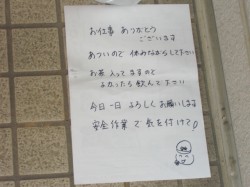 お仕事 ありがとう
ございます
あついので 休みながらして下さい
お茶 入ってますので
よかったら飲んで下さい
今日一日 よろしくお願いします
安全作業で気を付けて!